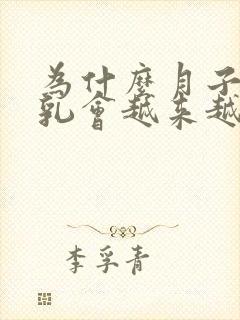 為什麼月子
乳會越來越
李孚青